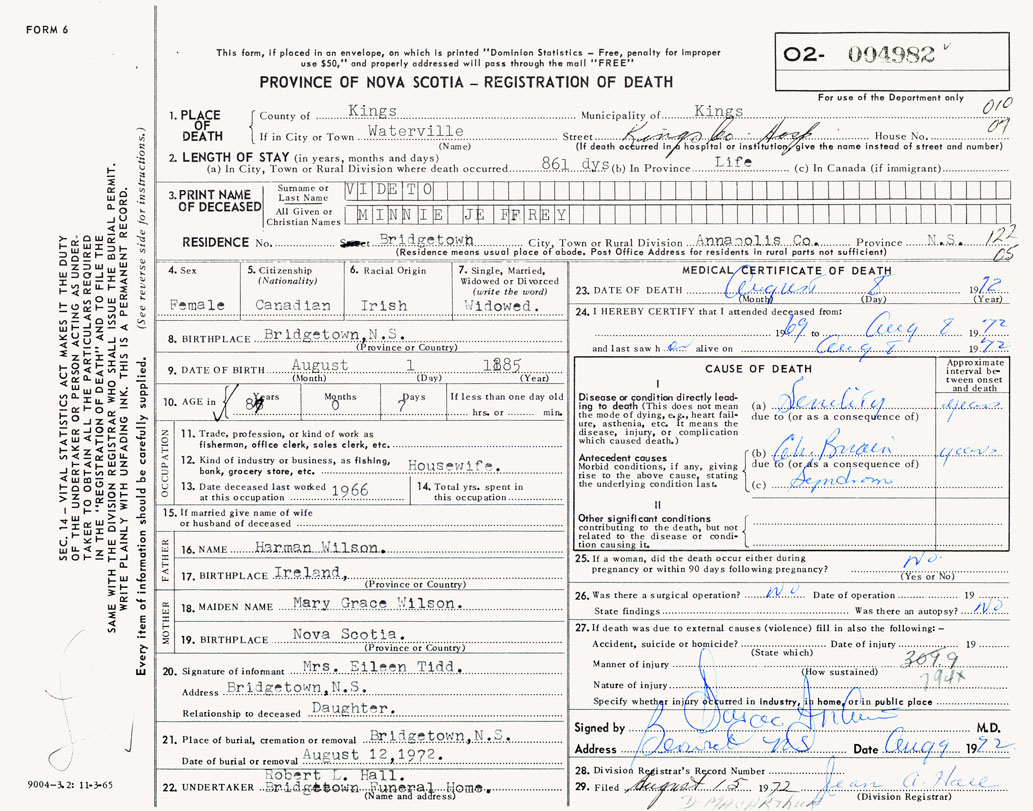 FORM 6
This form, if placed in an envelope, on which is printed "Dominion Statistics – Free, penalty for improper
use $50," and properly addressed will pass through the mail "FREE"
PROVINCE OF NOVA SCOTIA – REGISTRATION OF DEATH
O2- 004982
For use of the Department only
010
09
1. PLACE OF DEATH
County of Kings Municipality of Kings
If in City or Town Waterville Street Kings Co. Hosp House No.
(Name) (If death occurred in a hospital or institution, give the name instead of street and number)
2. LENGTH OF STAY (in years, months and days)
(a) In City, Town or Rural Division where death occurred 861 dys (b) In Province Life (c) In Canada (if immigrant)
3. PRINT NAME OF DECEASED
Surname or Last Name VIDETO
All Given or Christian Names MINNIE JEFFREY
RESIDENCE No. Street Bridgetown City, Town or Rural Division Annapolis Co. Province N.S.
122
05
(Residence means usual place of abode. Post Office Address for residents in rural parts not sufficient)
4. Sex
Female
5. Citizenship
(Nationality)
Canadian
6. Racial Origin
Irish
7. Single, Married,
Widowed or Divorced
(write the word)
Widowed.
8. BIRTHPLACE Bridgetown, N.S.
(Province or Country)
9. DATE OF BIRTH August 1 1885
(Month) (Day) (Year)
10. AGE in Years Months Days If less than one day old
0 7 hrs. or min.
OCCUPATION
11. Trade, profession, or kind of work as
fisherman, office clerk, sales clerk, etc.
12. Kind of industry or business, as fishing,
bank, grocery store, etc. Housewife.
13. Date deceased last worked
at this occupation 1966
14. Total yrs. spent in
this occupation
15. If married give name of wife
or husband of deceased
FATHER
16. NAME Harman Wilson.
17. BIRTHPLACE Ireland,
(Province or Country)
MOTHER
18. MAIDEN NAME Mary Grace Wilson.
19. BIRTHPLACE Nova Scotia.
(Province or Country)
20. Signature of informant Mrs. Eileen Tidd.
Address Bridgetown, N.S.
Relationship to deceased Daughter.
21. Place of burial, cremation or removal Bridgetown, N.S.
Date of burial or removal August 12,1972.
Robert L. Hall.
22. UNDERTAKER Bridgetown Funeral Home.
(Name and address)
MEDICAL CERTIFICATE OF DEATH
23. DATE OF DEATH August 8 1972
(Month) (Day) (Year)
24. I HEREBY CERTIFY that I attended deceased from:
1969 to Aug 8 1972
and last saw h er alive on Aug 8 1972
CAUSE OF DEATH
Approximate
interval be-
tween onset
and death
I
Disease or condition directly lead-
ing to death (This does not mean
the mode of dying, e.g., heart failure, asthenia, etc. It means the
disease, injury, or complication
which caused death.)
(a) Senility years
due to (or as a consequence of)
Antecedent causes
Morbid conditions, if any, giving
rise to the above cause, stating
the underlying condition last.
(b) Ch. Brain years
due to (or as a consequence of)
(c) Syndrom
II
Other significant conditions
contributing to the death, but not
related to the disease or condi-
tion causing it.
25. If a woman, did the death occur either during
pregnancy or within 90 days following pregnancy? No
(Yes or No)
26. Was there a surgical operation? No Date of operation 19
State findings Was there an autopsy? No
27. If death was due to external causes (violence) fill in also the following: –
Accident, suicide or homicide? Date of injury 19
(State which)
Manner of injury 309.9
(How sustained)
794x
Nature of injury
Specify whether injury occurred in industry, in home, or in public place
Signed by M.D.
Address Berwick NS Date Aug 9 1972
28. Division Registrar's Record Number
29. Filed August 15 1972 Jean A. Hall
D. MacArthur (Division Registrar)
SEC. 14 – VITAL STATISTICS ACT MAKES IT THE DUTY
OF THE UNDERTAKER OR PERSON ACTING AS UNDER-
TAKER TO OBTAIN ALL THE PARTICULARS REQUIRED
IN THE "REGISTRATION OF DEATH" AND TO FILE THE
SAME WITH THE DIVISION REGISTRAR WHO SHALL ISSUE THE BURIAL PERMIT.
WRITE PLAINLY WITH UNFADING INK. THIS IS A PERMANENT RECORD.
Every item of information should be carefully supplied. (See reverse side for instructions.)
9004–3.2: 11-3-65